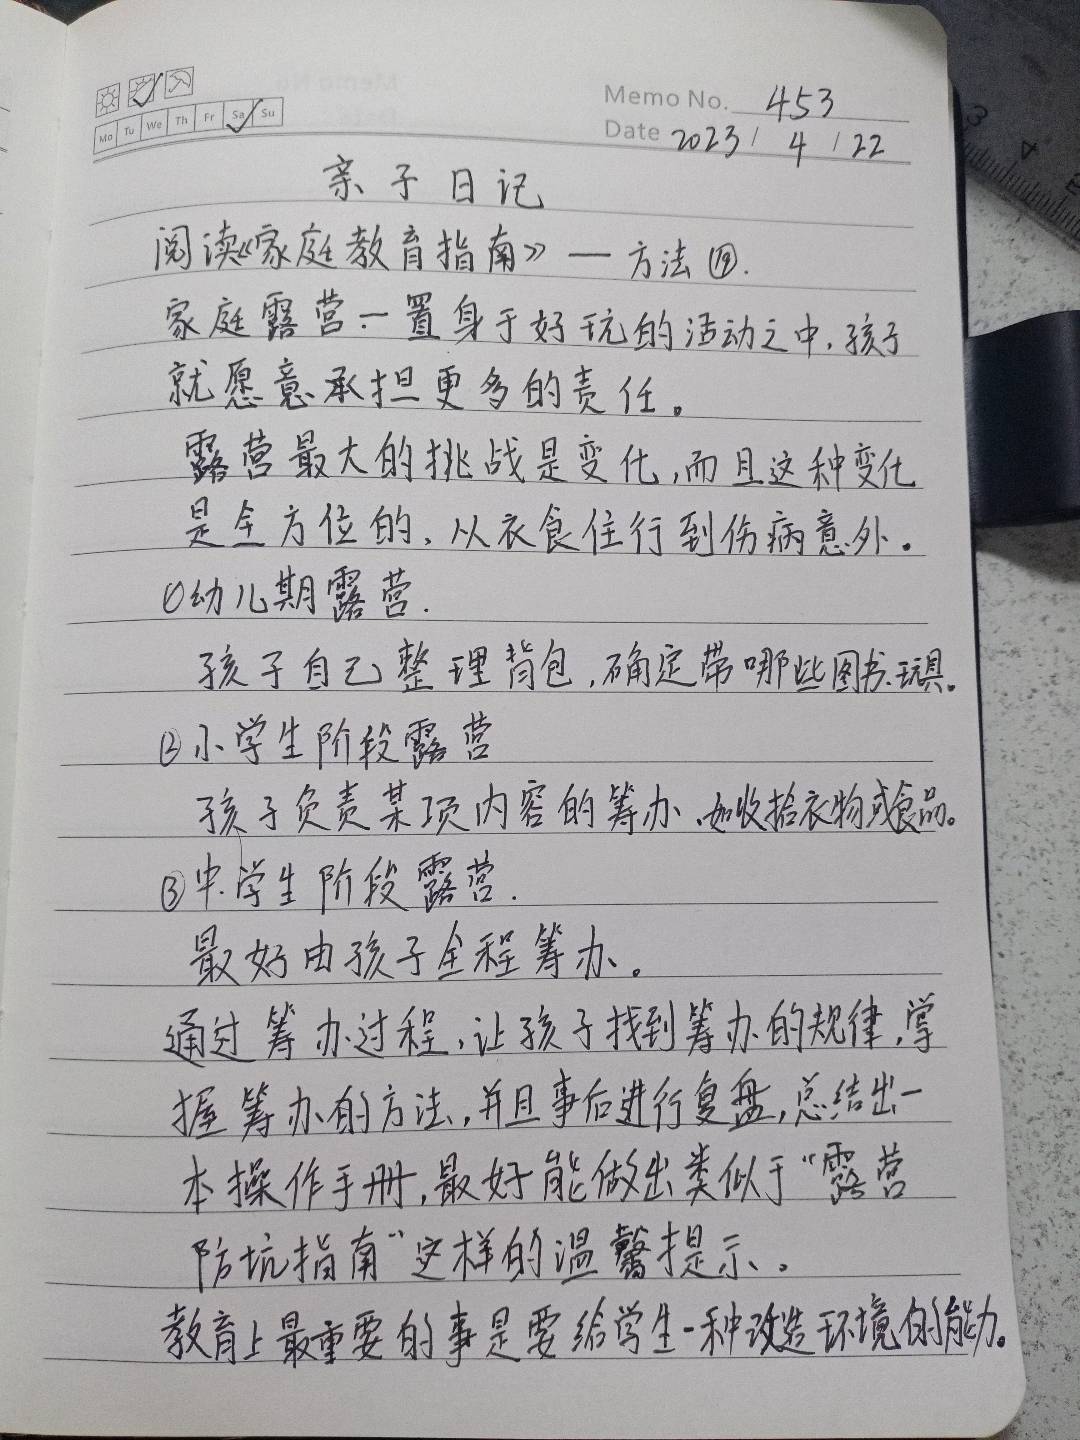 Memo No. 453
Mo Tu We Th Fr Sa Su
Date 2023 / 4 / 22
亲子日记
阅读《家庭教育指南》— 方法④.
家庭露营:一置身于好玩的活动之中,孩子
就愿意承担更多的责任。
露营最大的挑战是变化,而且这种变化
是全方位的、从衣食住行到伤病意外。
①幼儿期露营.
孩子自己整理背包,确定带哪些图书、玩具。
②小学生阶段露营
孩子负责某项内容的筹办、如收拾衣物或食品。
③中学生阶段露营.
最好由孩子全程筹办。
通过筹办过程,让孩子找到筹办的规律,掌
握筹办的方法,并且事后进行复盘,总结出一
本操作手册,最好能做出类似于“露营
防坑指南”这样的温馨提示。
教育上最重要的事是要给学生一种改造环境的能力。
3 4 5